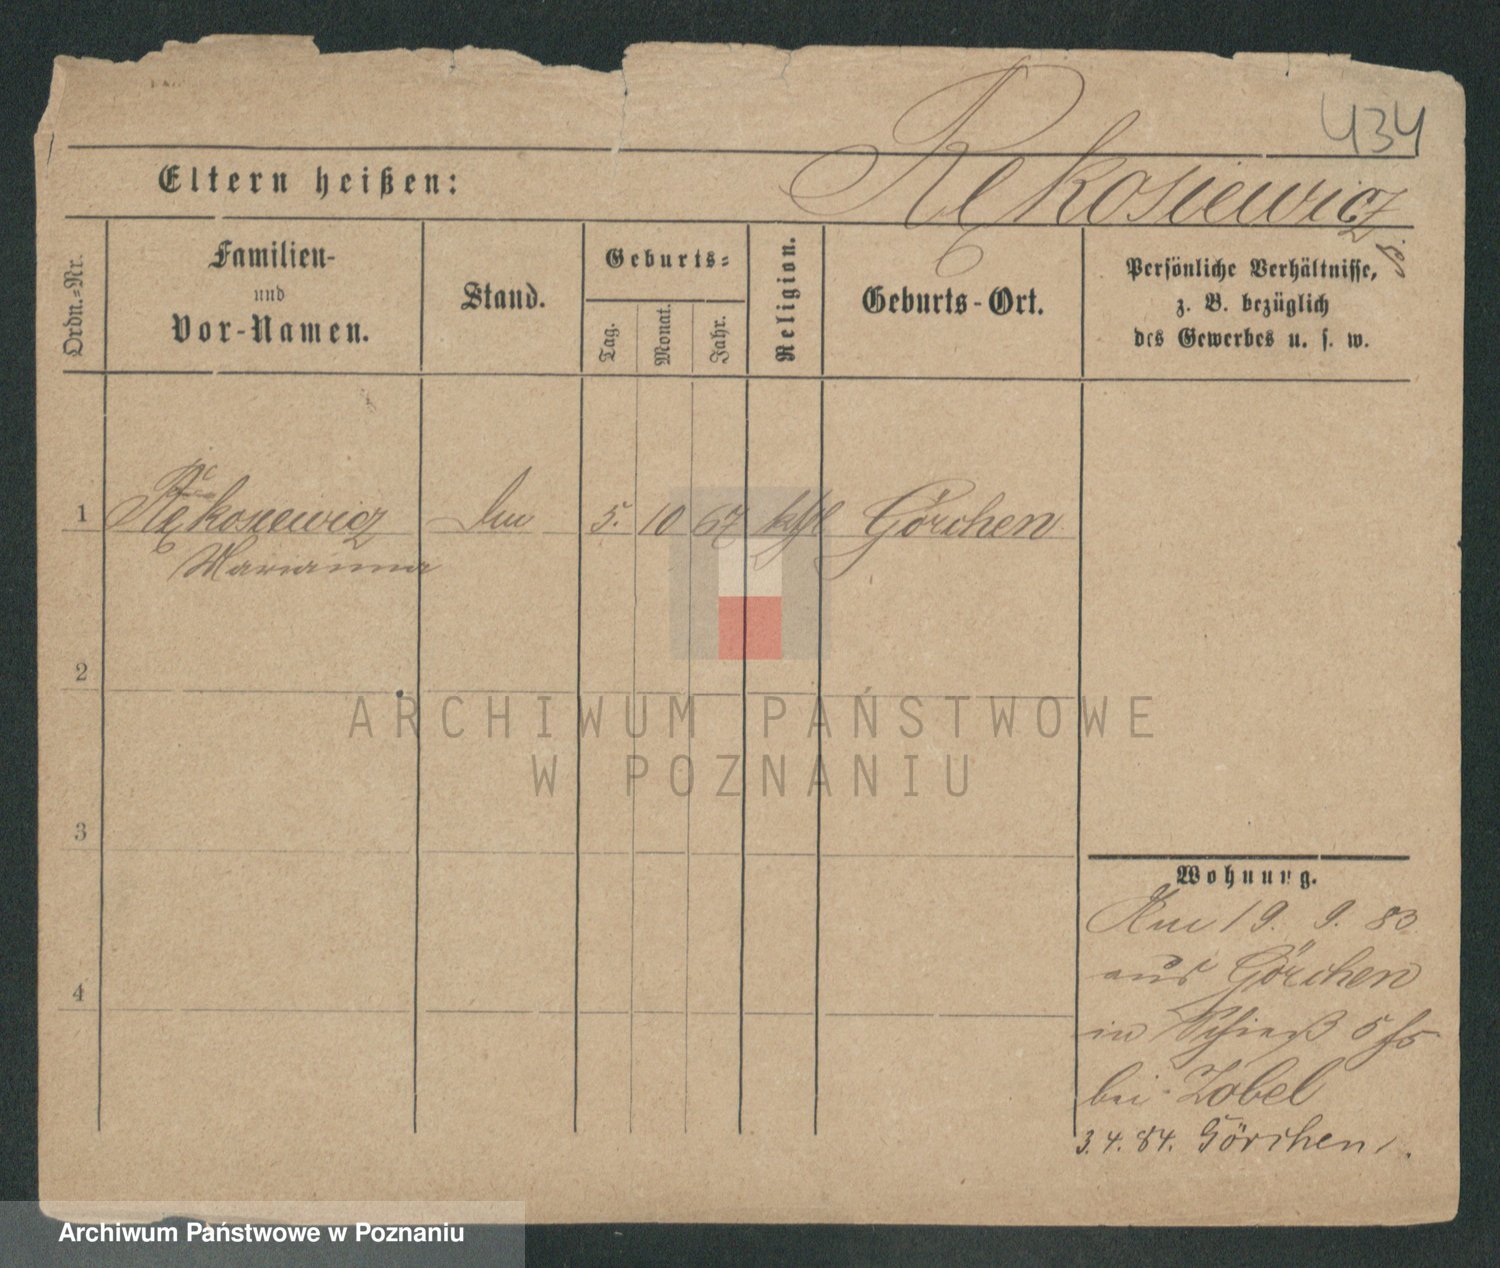 434
Rękosiewicz
Eltern heißen:
Ordn.-Nr.
Familien-
und
Vor-Namen.
Stand.
Geburts-
Tag.
Monat.
Jahr.
Religion.
Geburts-Ort.
Persönliche Verhältnisse,
z. B. bezüglich
des Gewerbes u. s. w.
1 Rękosiewicz 5. 10 67 kath Görchen
Marianna
2
3
4
Wohnung.
Am 19. 9. 83
aus Görchen
in Schieß 5
bei Zobel
3.4.84. Görchen
ARCHIWUM PAŃSTWOWE
W POZNANIU
Archiwum Państwowe w Poznaniu